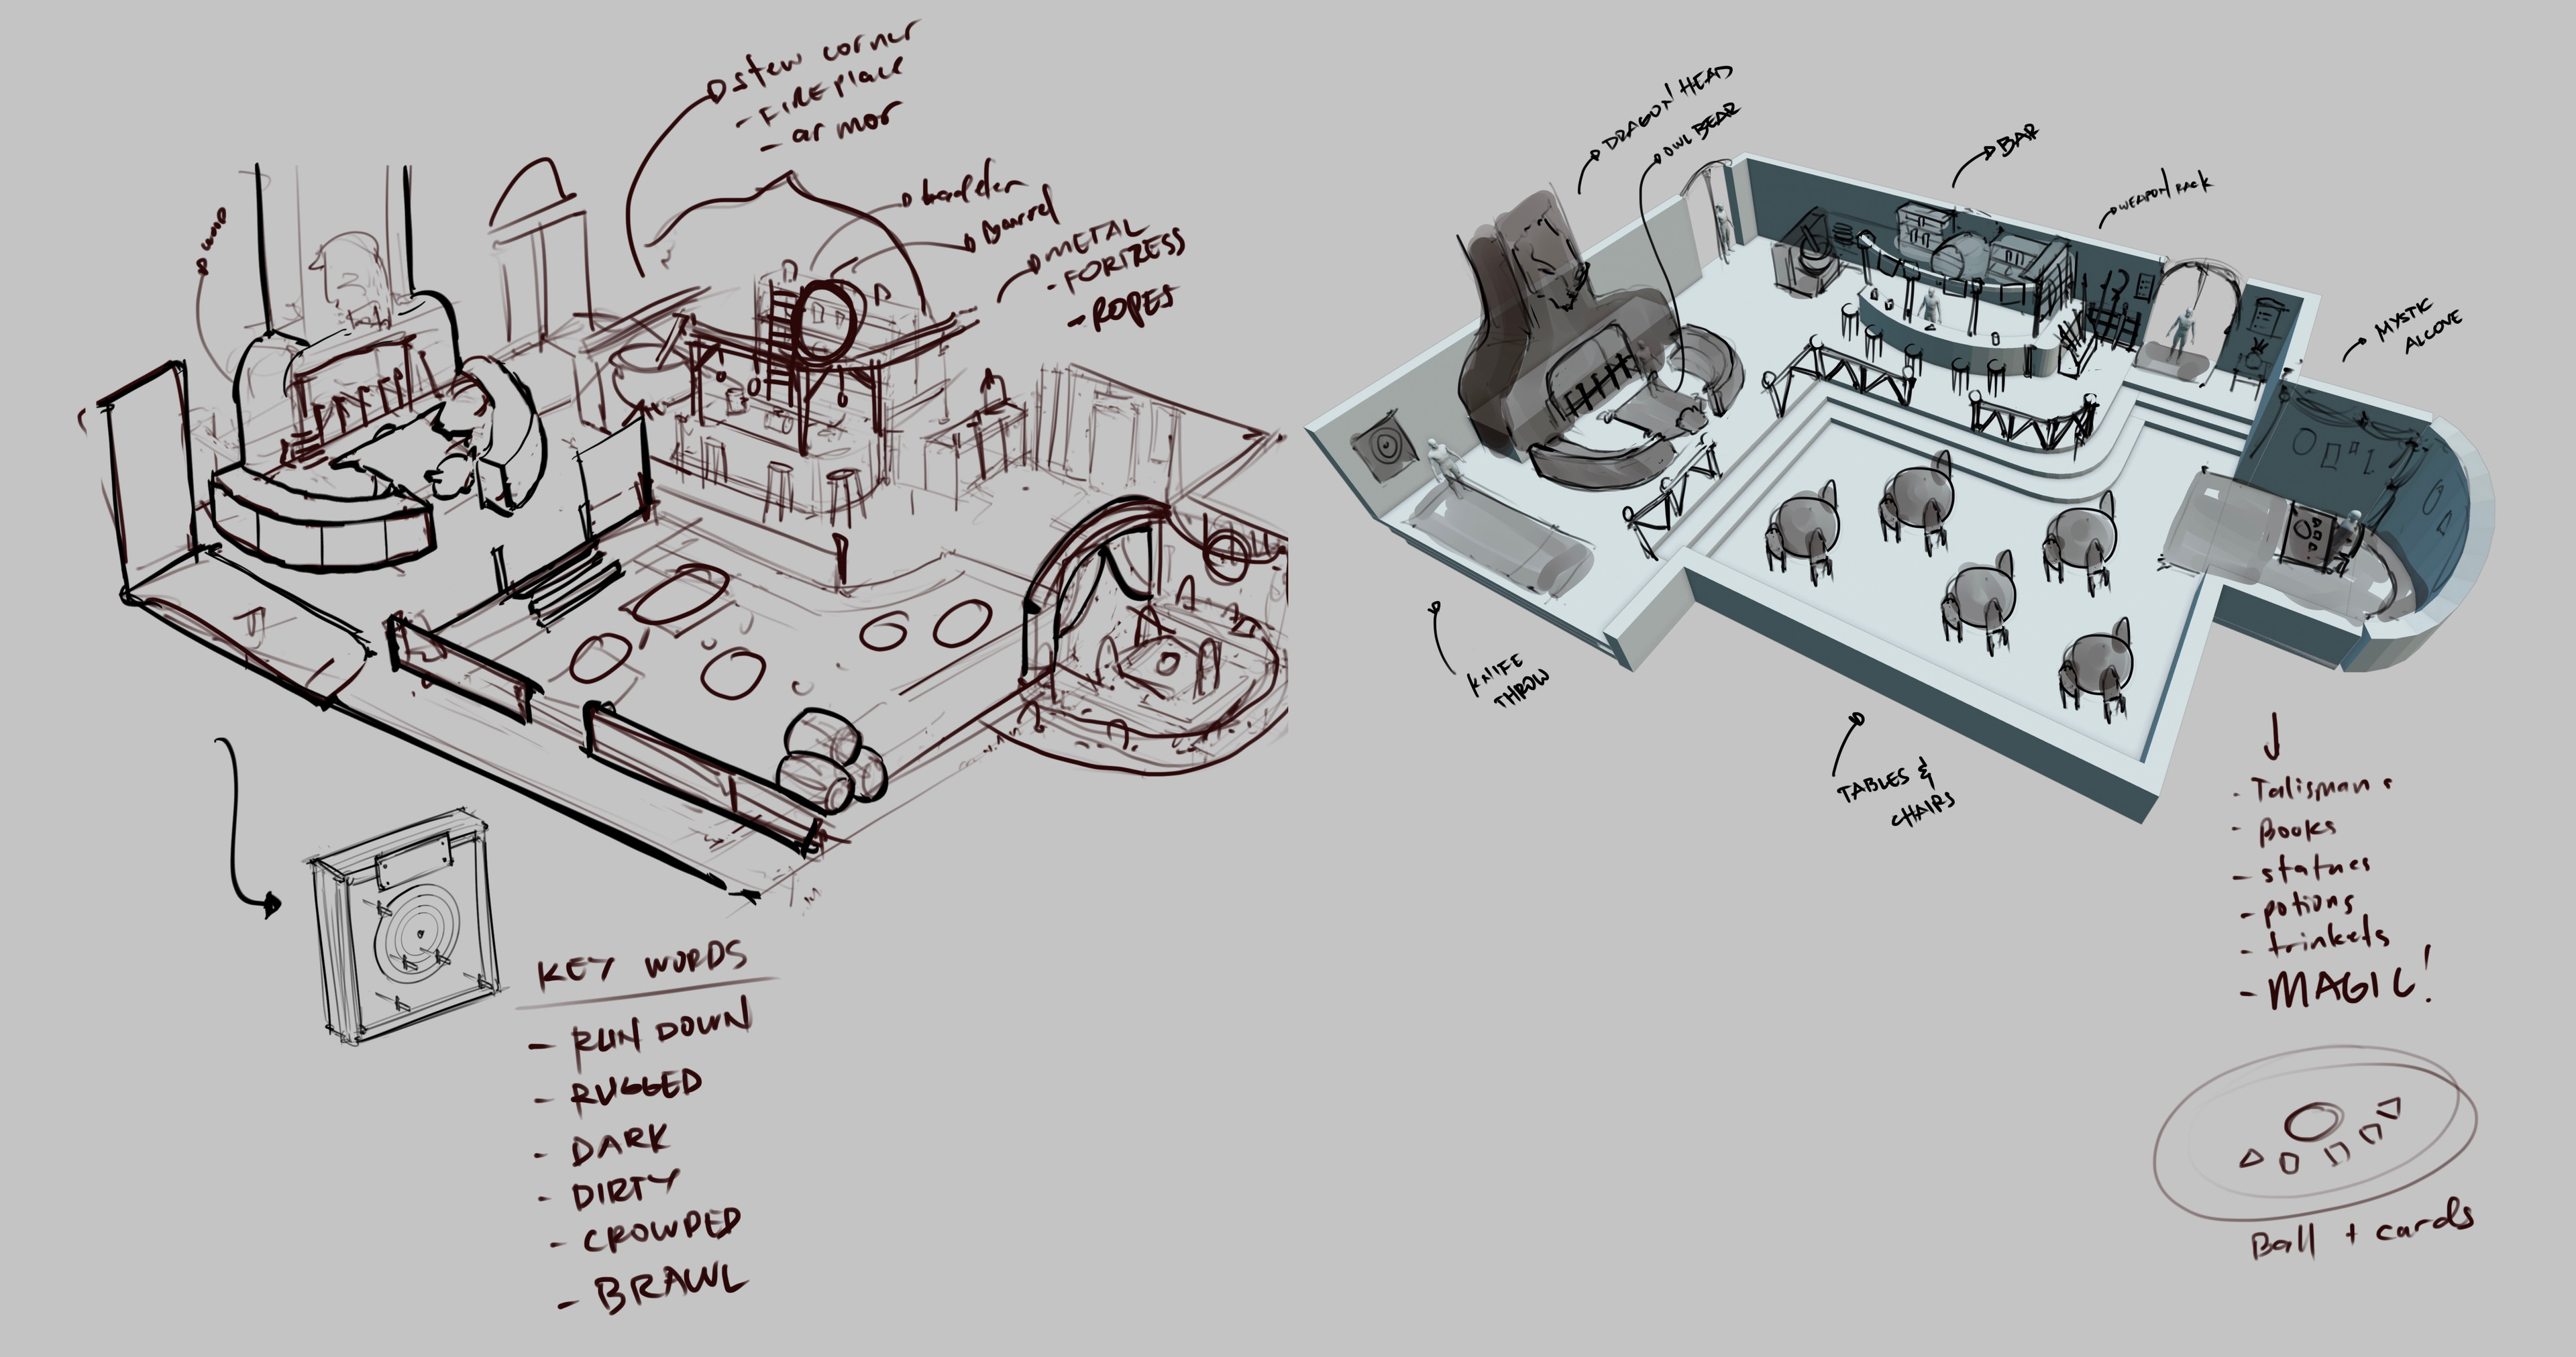 stew corner
- FIREplace
- armor
wood
Barrel
METAL
- FORTRESS
- ROPES
KEY WORDS
- RUN DOWN
- RUGGED
- DARK
- DIRTY
- CROWDED
- BRAWL
DRAGON HEAD
OWL BEAR
BAR
WEAPON RACK
MYSTIC
ALCOVE
KNIFE
THROW
TABLES &
CHAIRS
- Talismans
- Books
- statues
- potions
- trinkets
- MAGIC!
Ball + cards